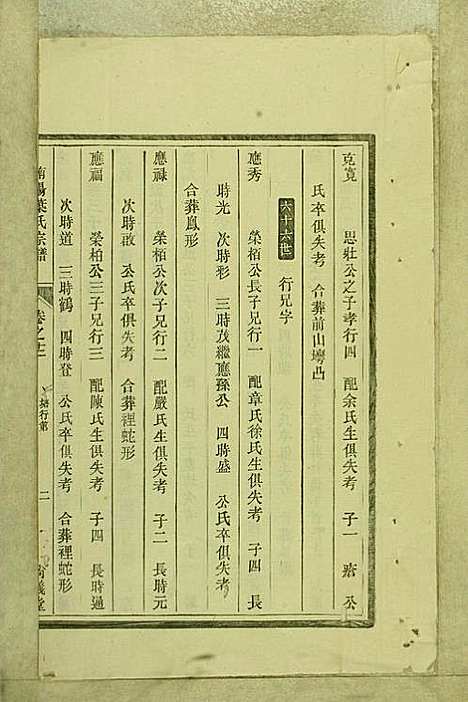 克寬 思莊公之子孝行四 配余氏生俱失考 子一 瘀 公
氏卒俱失考 合葬前山塆凸
六十六世 行兄字
應秀 榮栢公長子兄行一 配章氏徐氏生俱失考 子四 長
時光 次時形 三時茂繼應孫公 四時盛 公氏卒俱失考
合葬鳳形
應祿 榮栢公次子兄行二 配嚴氏生俱失考 子二 長時元
次時啟 公氏卒俱失考 合葬裡蛇形
應福 榮柏公三子兄行三 配陳氏生俱失考 子四 長時通
次時道 三時鶴 四時登 公氏卒俱失考 合葬裡蛇形
南陽葉氏宗譜 卷之 行第 二 義堂